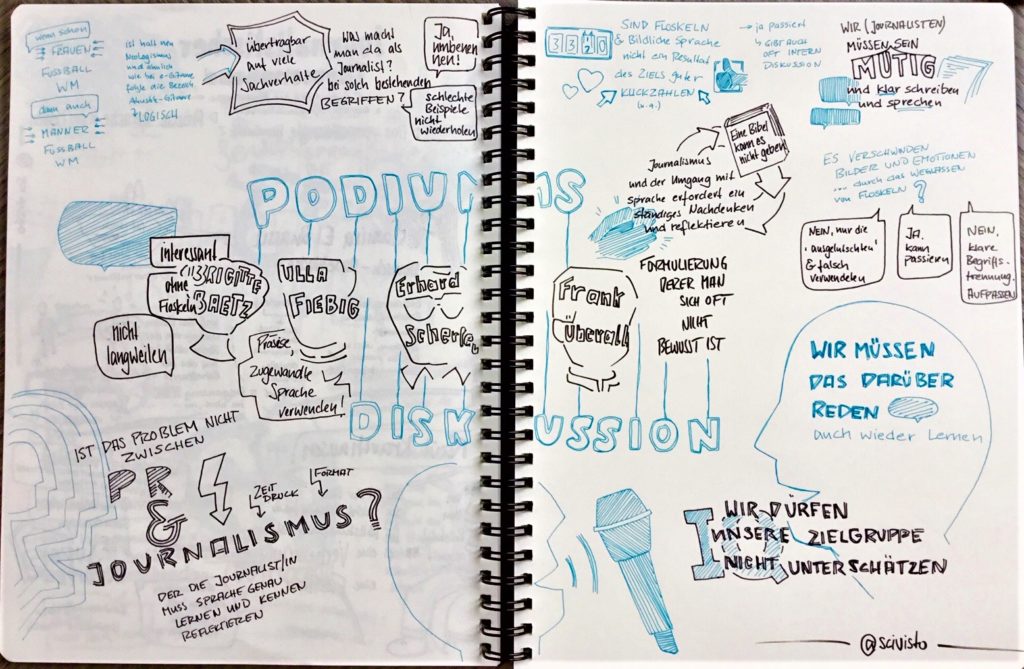 wenn schon
FRAUEN
FUSSBALL
WM
dann auch
MÄNNER
FUSSBALL
WM
ist halt nen
Neologismus
und ähnlich
wie bei e-Gitarre
folgte die Bezeich
Akustik-Gitarre
LOGISCH
übertragbar
auf viele
Sachverhalte
WAS MACHT
man da als
Journalist?
bei solch bestehenden
BEGRIFFEN?
Ja,
umbenennen!
schlechte
Beispiele
nicht
wiederholen
SIND FLOSKELN
& Bildliche Sprache
nicht ein Resultat
des ZIELS guter
KLICKZAHLEN
(u.a.)
→ ja passiert
→ GIBT AUCH
INTERN
DISKUSSION
WIR (JOURNALISTEN)
MÜSSEN SEIN
MUTIG
und klar schreiben
und sprechen
Eine Bibel
kann es
nicht geben
Journalismus
und der Umgang mit
Sprache erfordert ein
ständiges Nachdenken
und reflektieren
ES VERSCHWINDEN
BILDER UND EMOTIONEN
... durch das WEGLASSEN
von FLOSKELN?
NEIN, nur die
"ausgelutschten"
& falsch
verwendeten
JA,
kann
passieren
NEIN,
klare
Begriffs-
trennung.
AUFPASSEN
PODIUMS
interessant
ohne
Floskeln
BRIGITTE
BAETZ
nicht
langweilen
ULLA
FIEBIG
Präzise,
zugewandte
Sprache
verwenden!
Erhard
Scherfer
Frank
Überall
FORMULIERUNG
DERER MAN
SICH OFT
NICHT
BEWUSST IST
DISKUSSION
IST DAS PROBLEM NICHT
ZWISCHEN
PR
&
JOURNALISMUS?
ZEIT
DRUCK
FORMAT
DER DIE JOURNALIST/IN
MUSS SPRACHE GENAU
LERNEN UND KENNEN
REFLEKTIEREN
WIR MÜSSEN
DAS DARÜBER
REDEN
auch wieder lernen
IQ
WIR DÜRFEN
UNSERE ZIELGRUPPE
NICHT UNTERSCHÄTZEN
@scivisto